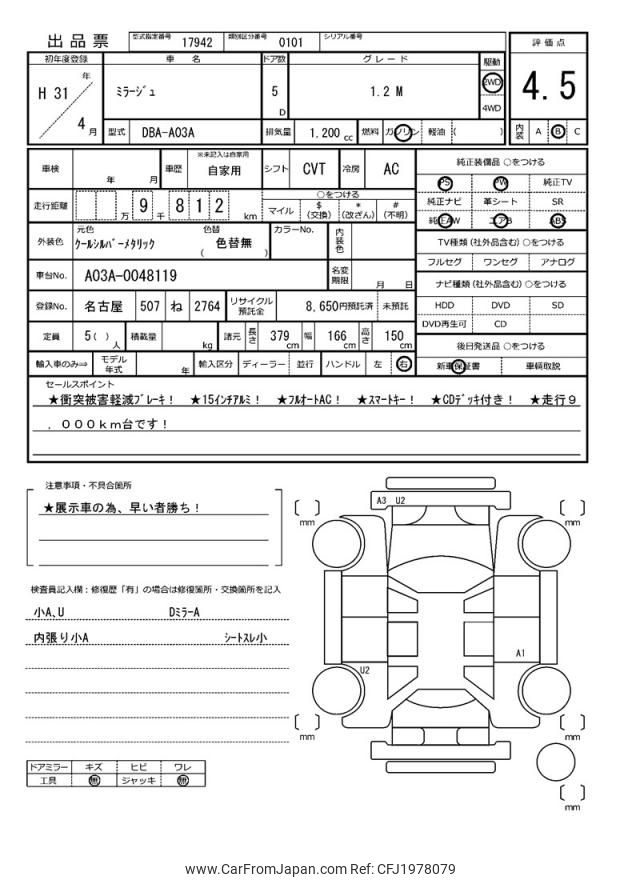 出品票 型式指定番号 17942 類別区分番号 0101 シリアル番号
評価点
4.5
内装 A B C
初年度登録 車名 ドア数 グレード 駆動
H 31 年 4 月 ミラージュ 5 D 1.2 M 2WD
4WD
型式 DBA-A03A 排気量 1.200 cc 燃料 ガソリン 軽油 ( )
車検 年 月 車歴 ※未記入は自家用 自家用 シフト CVT 冷房 AC
走行距離 万 9 千 8 1 2 km
○をつける
マイル $ (交換) * (改ざん) # (不明)
外装色 元色 クールシルバーメタリック 色替 ( 色替無 ) カラーNo. 内装色
車台No. A03A-0048119 名変期限 月 日
登録No. 名古屋 507 ね 2764 リサイクル預託金 8,650円預託済 未預託
定員 5( ) 人 積載量 kg 諸元 長さ 379 cm 幅 166 cm 高さ 150 cm
輸入車のみ⇒ モデル年式 年 輸入区分 ディーラー 並行 ハンドル 左 右
純正装備品 ○をつける
PS PW 純正TV
純正ナビ 革シート SR
純正AW エアB ABS
TV種類(社外品含む)○をつける
フルセグ ワンセグ アナログ
ナビ種類(社外品含む)○をつける
HDD DVD SD
DVD再生可 CD
後日発送品 ○をつける
新車保証書 車輌取説
セールスポイント
★衝突被害軽減ブレーキ! ★15インチアルミ! ★フルオートAC! ★スマートキー! ★CDデッキ付き! ★走行9
.000km台です!
注意事項・不具合箇所
★展示車の為、早い者勝ち!
検査員記入欄:修復歴「有」の場合は修復箇所・交換箇所を記入
小A、U DミラーA
内張り小A シートスレ小
ドアミラー キズ ヒビ ワレ
工具 無 ジャッキ 無
A3 U2
mm
mm
A1
U2
mm
mm
mm
www.CarFromJapan.com Ref: CFJ1978079